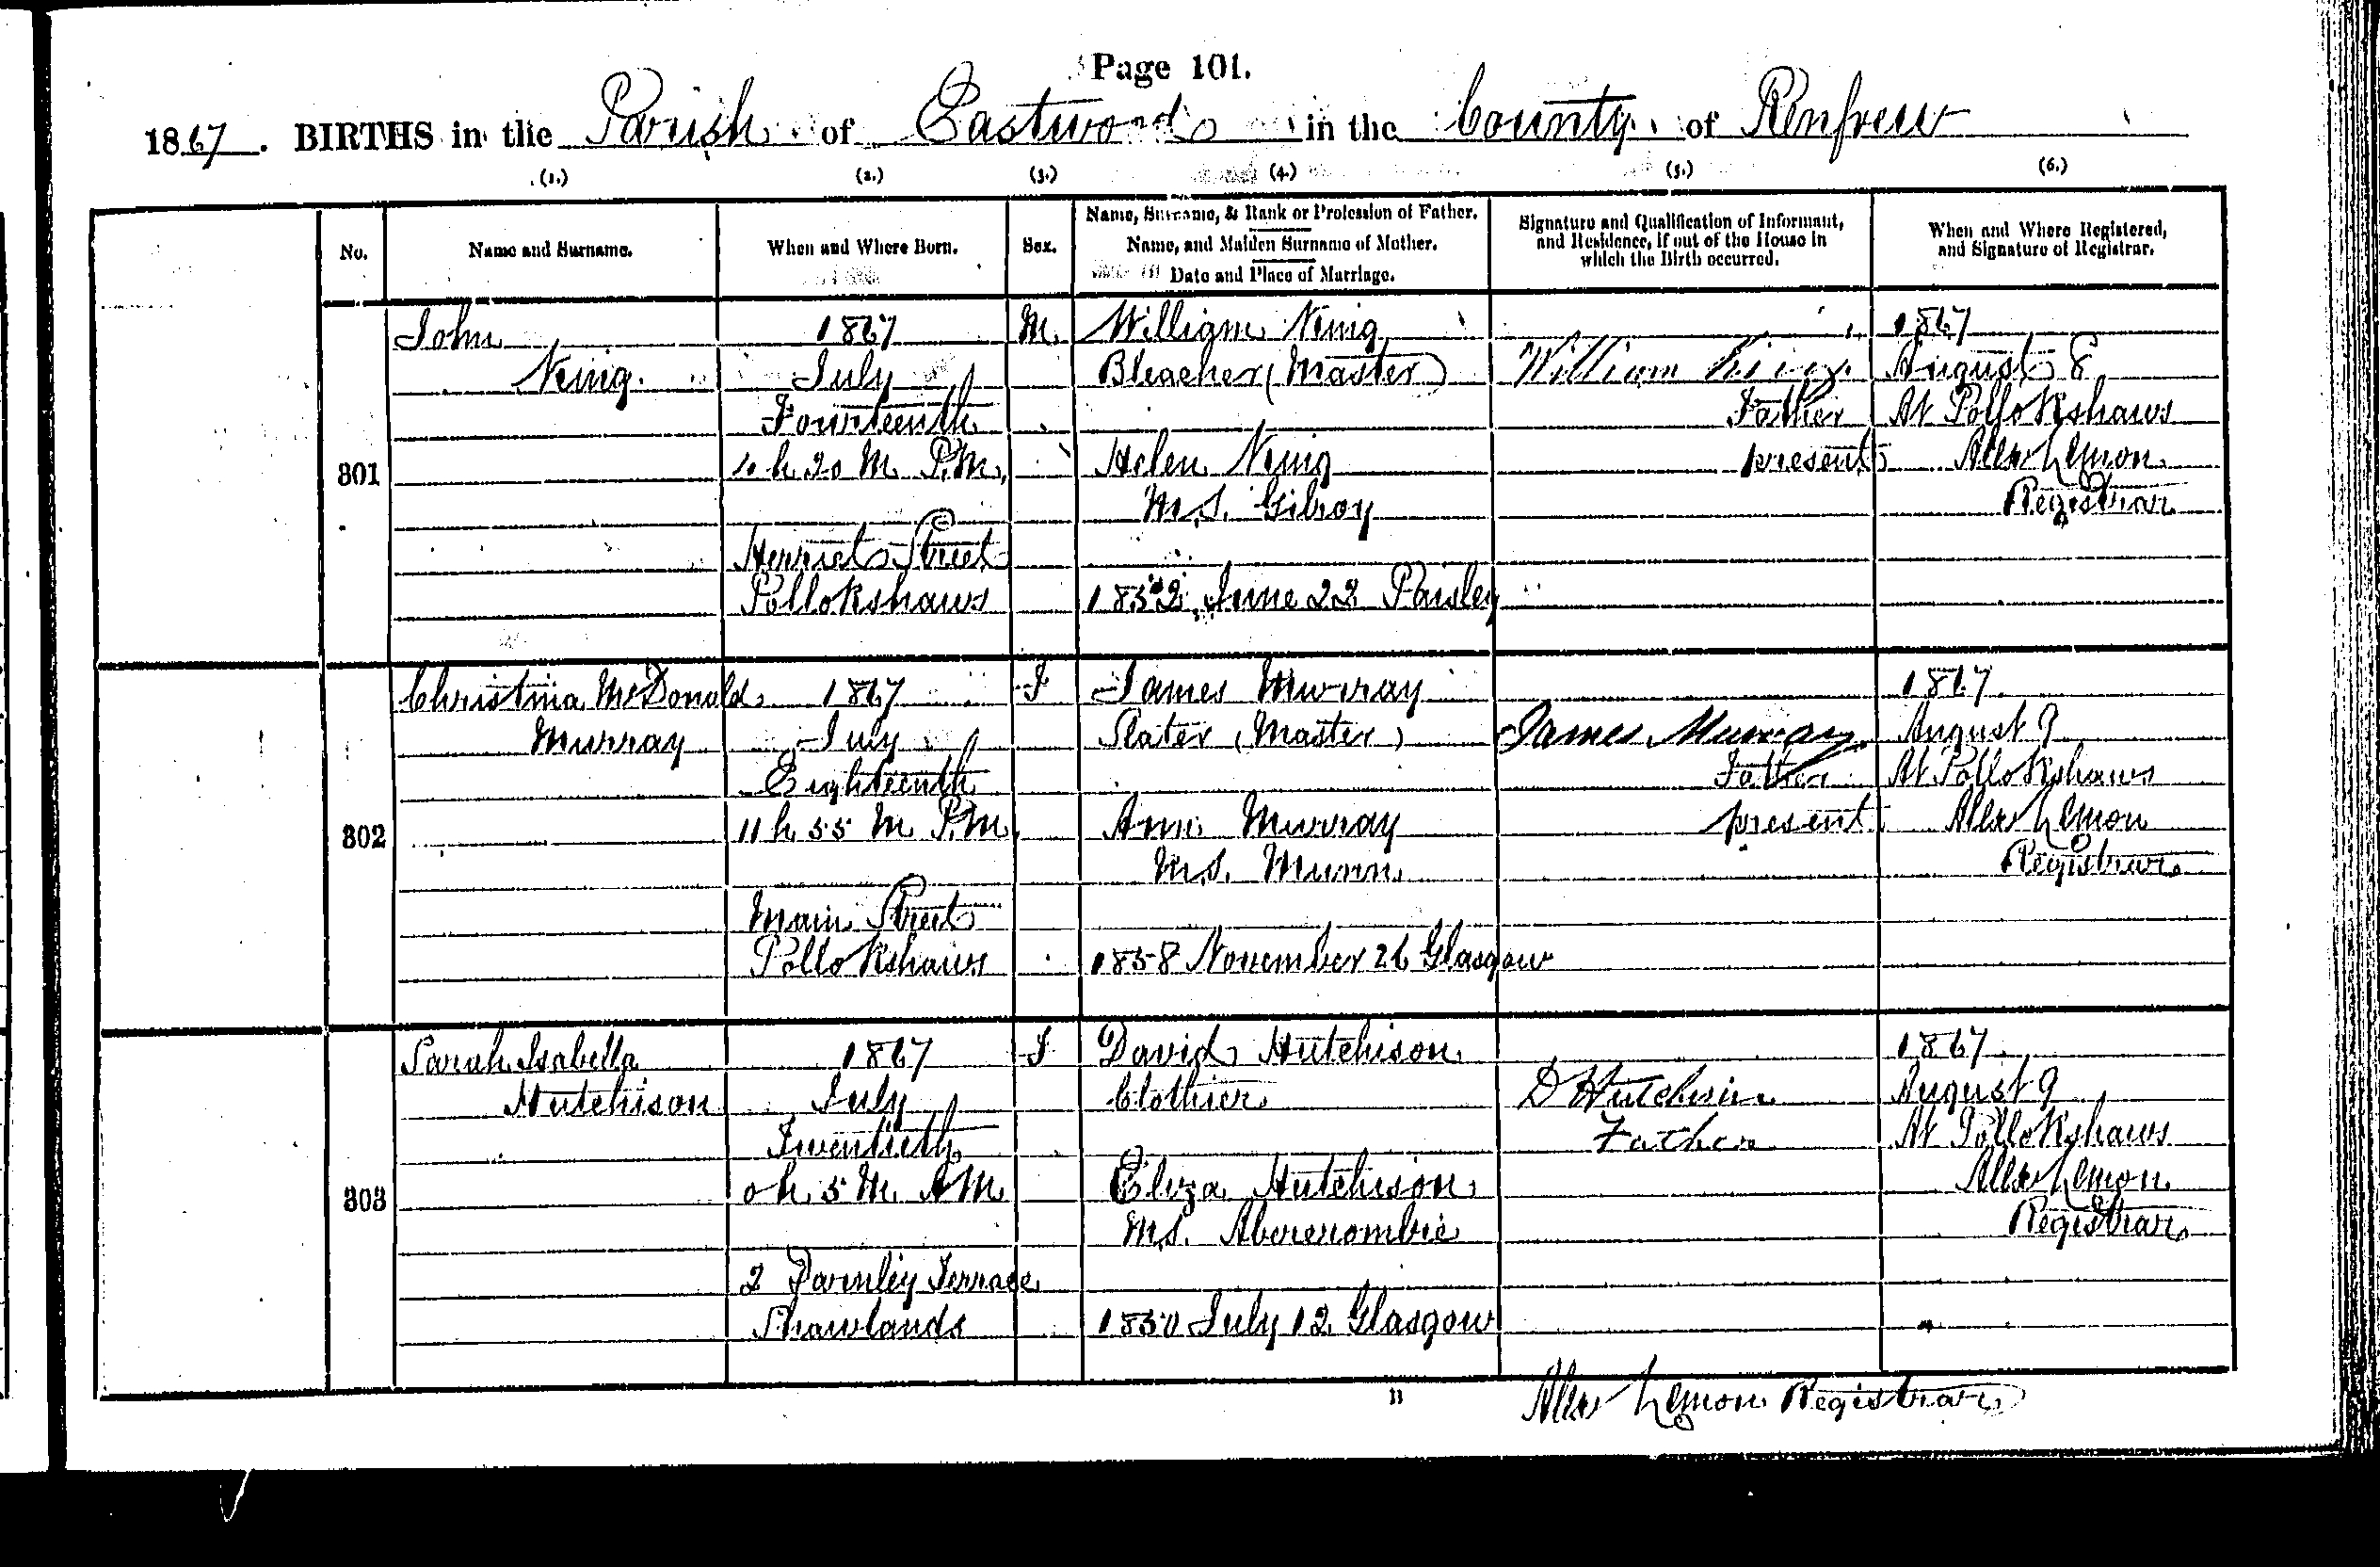 Page 101.
1867. BIRTHS in the Parish of Eastwood in the County of Renfrew
(1.) (2.) (3.) (4.) (5.) (6.)
No. Name and Surname. When and Where Born. Sex. Name, Surname, & Rank or Profession of Father. Name, and Maiden Surname of Mother. Date and Place of Marriage. Signature and Qualification of Informant, and Residence, if out of the House in which the Birth occurred. When and Where Registered, and Signature of Registrar.
801
John
King
1867
July
Fourteenth
h 20 M. P.M.
Street
Pollokshaws
M.
William King
Bleacher (Master)
Helen King
M.S. Gilroy
1852 June 22 Paisley
William King
Father
present
1867
August 8
At Pollokshaws
Alex Lemon
Registrar
802
Christina McDonald
Murray
1867
July
Eighteenth
11 h 55 M P.M.
Main Street
Pollokshaws
F
James Murray
Slater (Master)
Ann Murray
M.S. Munn
1858 November 26 Glasgow
James Murray
Father
present
1867
August 9
At Pollokshaws
Alex Lemon
Registrar
803
Sarah Isabella
Hutchison
1867
July
Twentieth
0 h. 5 M. AM
2 Darnley Terrace
Shawlands
F
David Hutchison
Clothier
Eliza Hutchison
M.S. Abercrombie
1850 July 12 Glasgow
D Hutchison
Father
1867
August 9
At Pollokshaws
Alex Lemon
Registrar
Alex Lemon Registrar